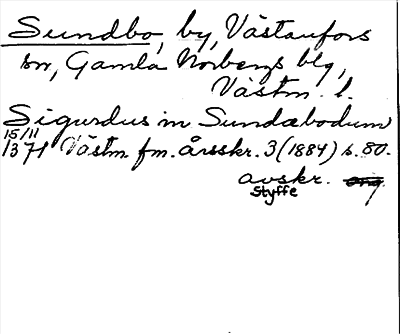 Sundbo, by, Västanfors
sn, Gamla Norbergs blg,
Västm. l.
Sigurdus in Sundæbodum
15/11
1371 Västm fm. årsskr. 3 (1884) s. 80.
avskr. orig.
Styffe